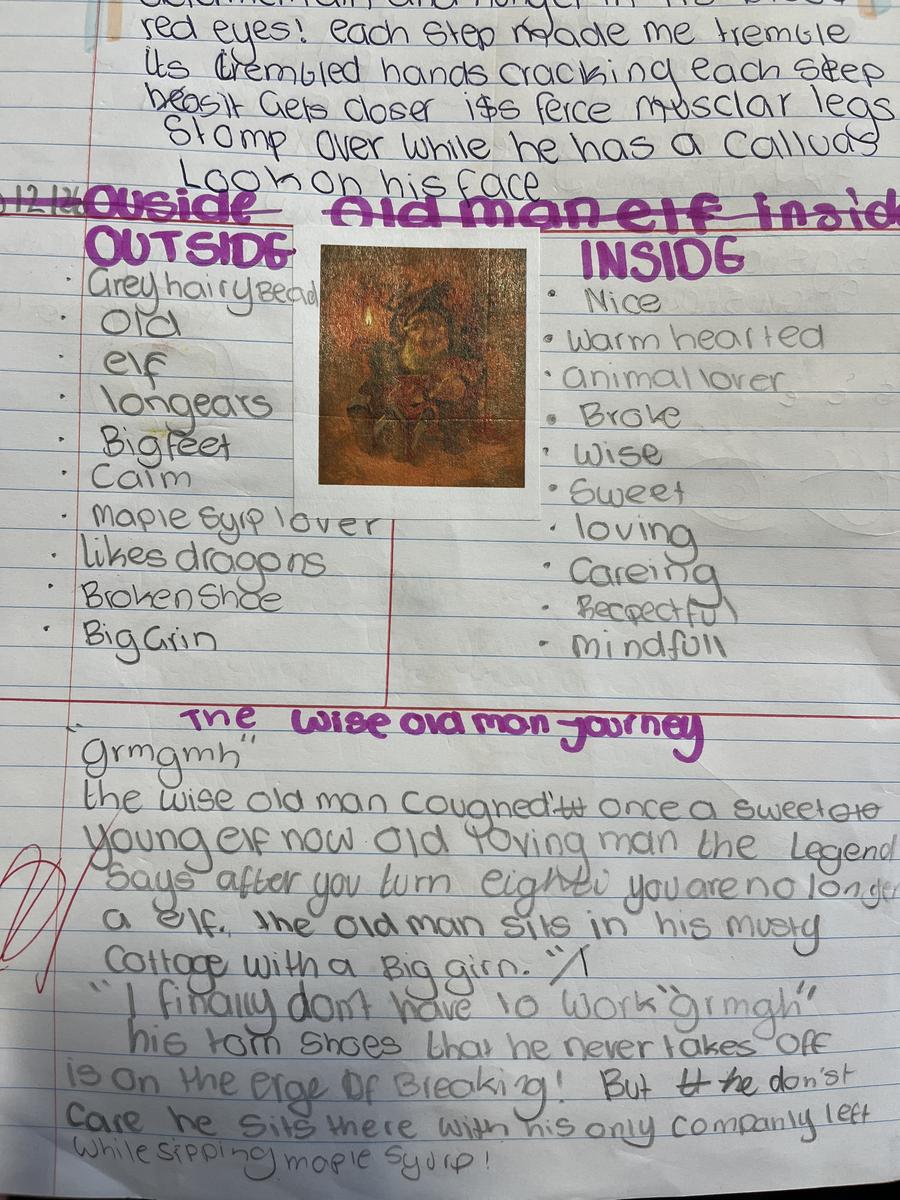 red eyes! each step made me tremble
its trembled hands cracking each step
beast Gets closer its ferce musclar legs
Stomp over while he has a Calluas
Look on his face
12/2
Ouside Old man elf insid
OUTSIDE
INSIDE
• Grey hairy Bead
• Old
• elf
• long ears
• Big feet
• Calm
• maple Syrp lover
• likes dragons
• Broken Shoe
• Big Grin
• Nice
• warm hearted
• animal lover
• Broke
• Wise
• Sweet
• loving
• Careing
• Recpectful
• mindfull
The wise old man journey
grmgmh"
the wise old man coughed once a sweet
young elf now old loving man the Legend
Says after you turn eighti you are no longer
a elf. the old man sits in his musty
Cottage with a Big girn.
"I finally don't have to work "grmgh"
his torn shoes that he never takes off
is on the erge of Breaking! But he don'st
Care he sits there with his only companly left
while sipping maple Sydrp!